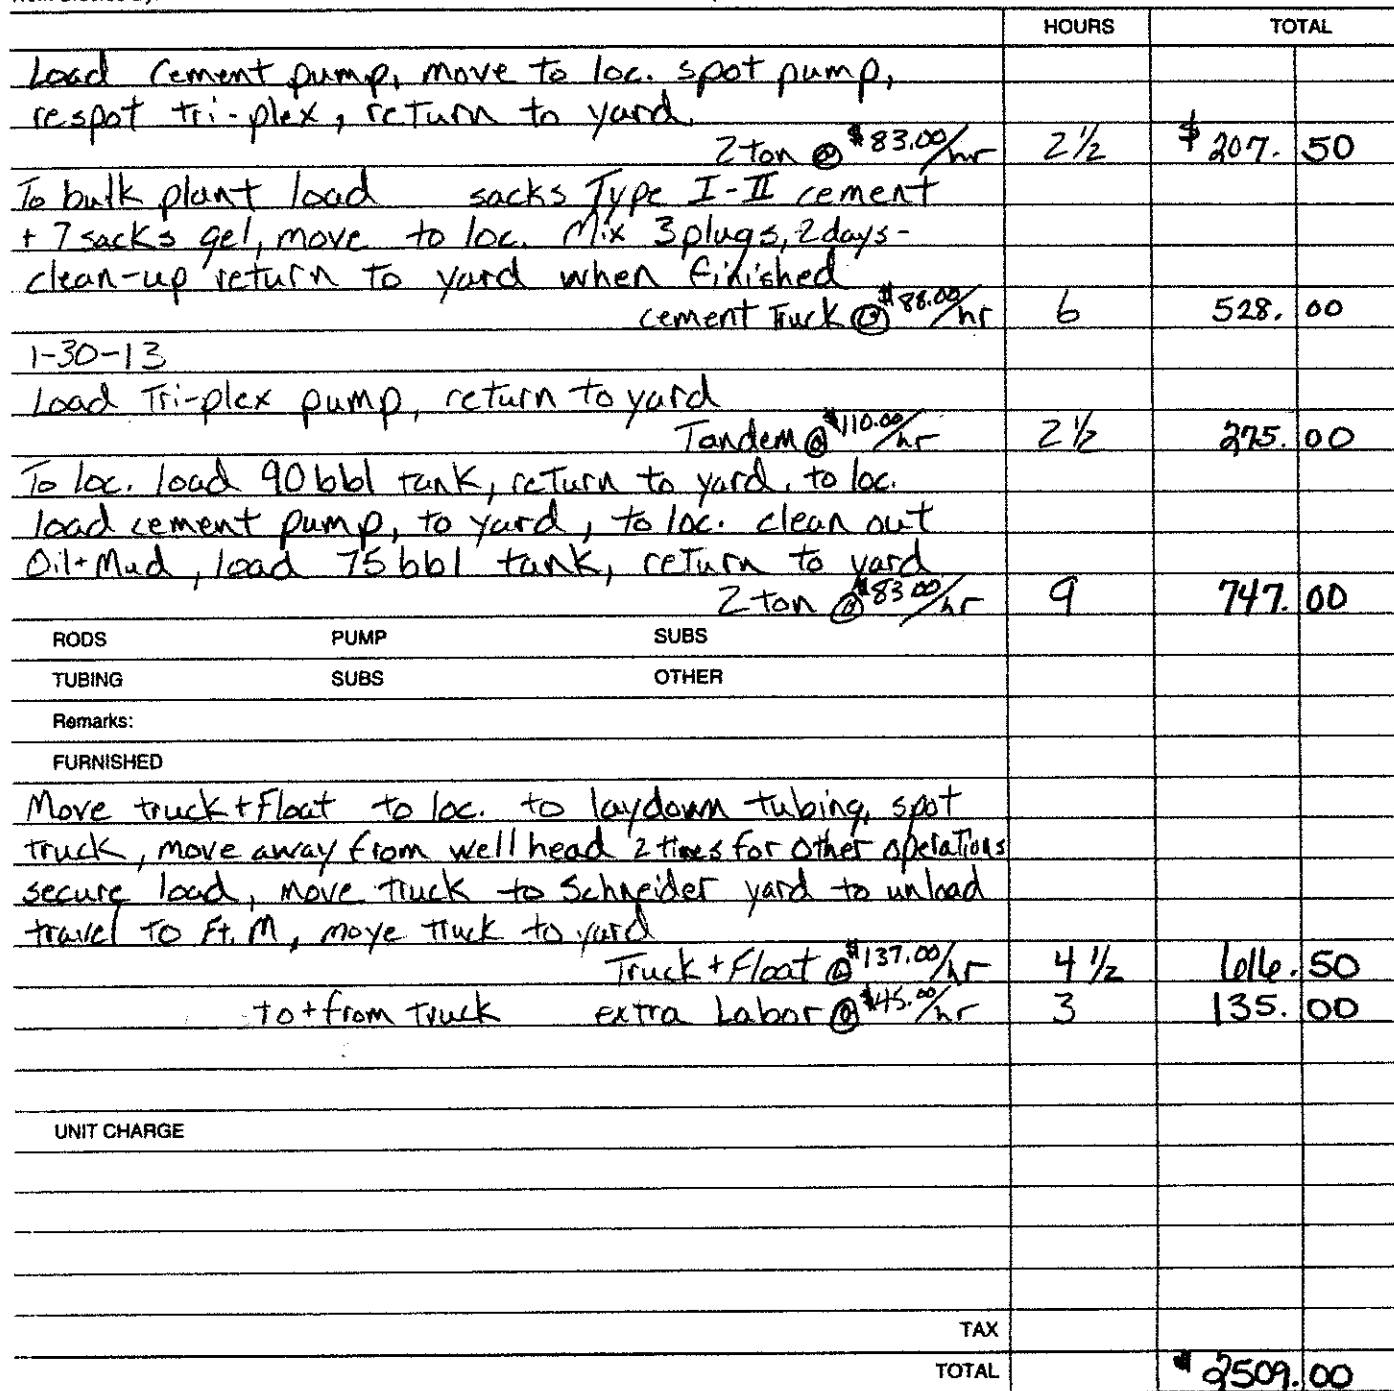 HOURS TOTAL
Load Cement pump, move to loc. spot pump,
respot tri-plex, return to yard.
2 ton @ $83.00/hr 2 1/2 $ 207. 50
To bulk plant load sacks Type I-II cement
+ 7 sacks gel, move to loc. Mix 3 plugs, 2 days-
clean-up return to yard when finished
cement Truck @ $88.00/hr 6 528. 00
1-30-13
Load Tri-plex pump, return to yard
Tandem @ $110.00/hr 2 1/2 275. 00
To loc. load 90 bbl tank, return to yard, to loc.
load cement pump, to yard, to loc. clean out
Oil + Mud, load 75 bbl tank, return to yard
2 ton @ $83.00/hr 9 747. 00
RODS PUMP SUBS
TUBING SUBS OTHER
Remarks:
FURNISHED
Move truck + Float to loc. to laydown tubing, spot
truck, move away from well head 2 times for other operations
secure load, move truck to Schneider yard to unload
travel to Ft. M, move truck to yard
Truck + Float @ $137.00/hr 4 1/2 616. 50
to + from truck extra Labor @ $45.00/hr 3 135. 00
UNIT CHARGE
TAX
TOTAL $ 2509. 00